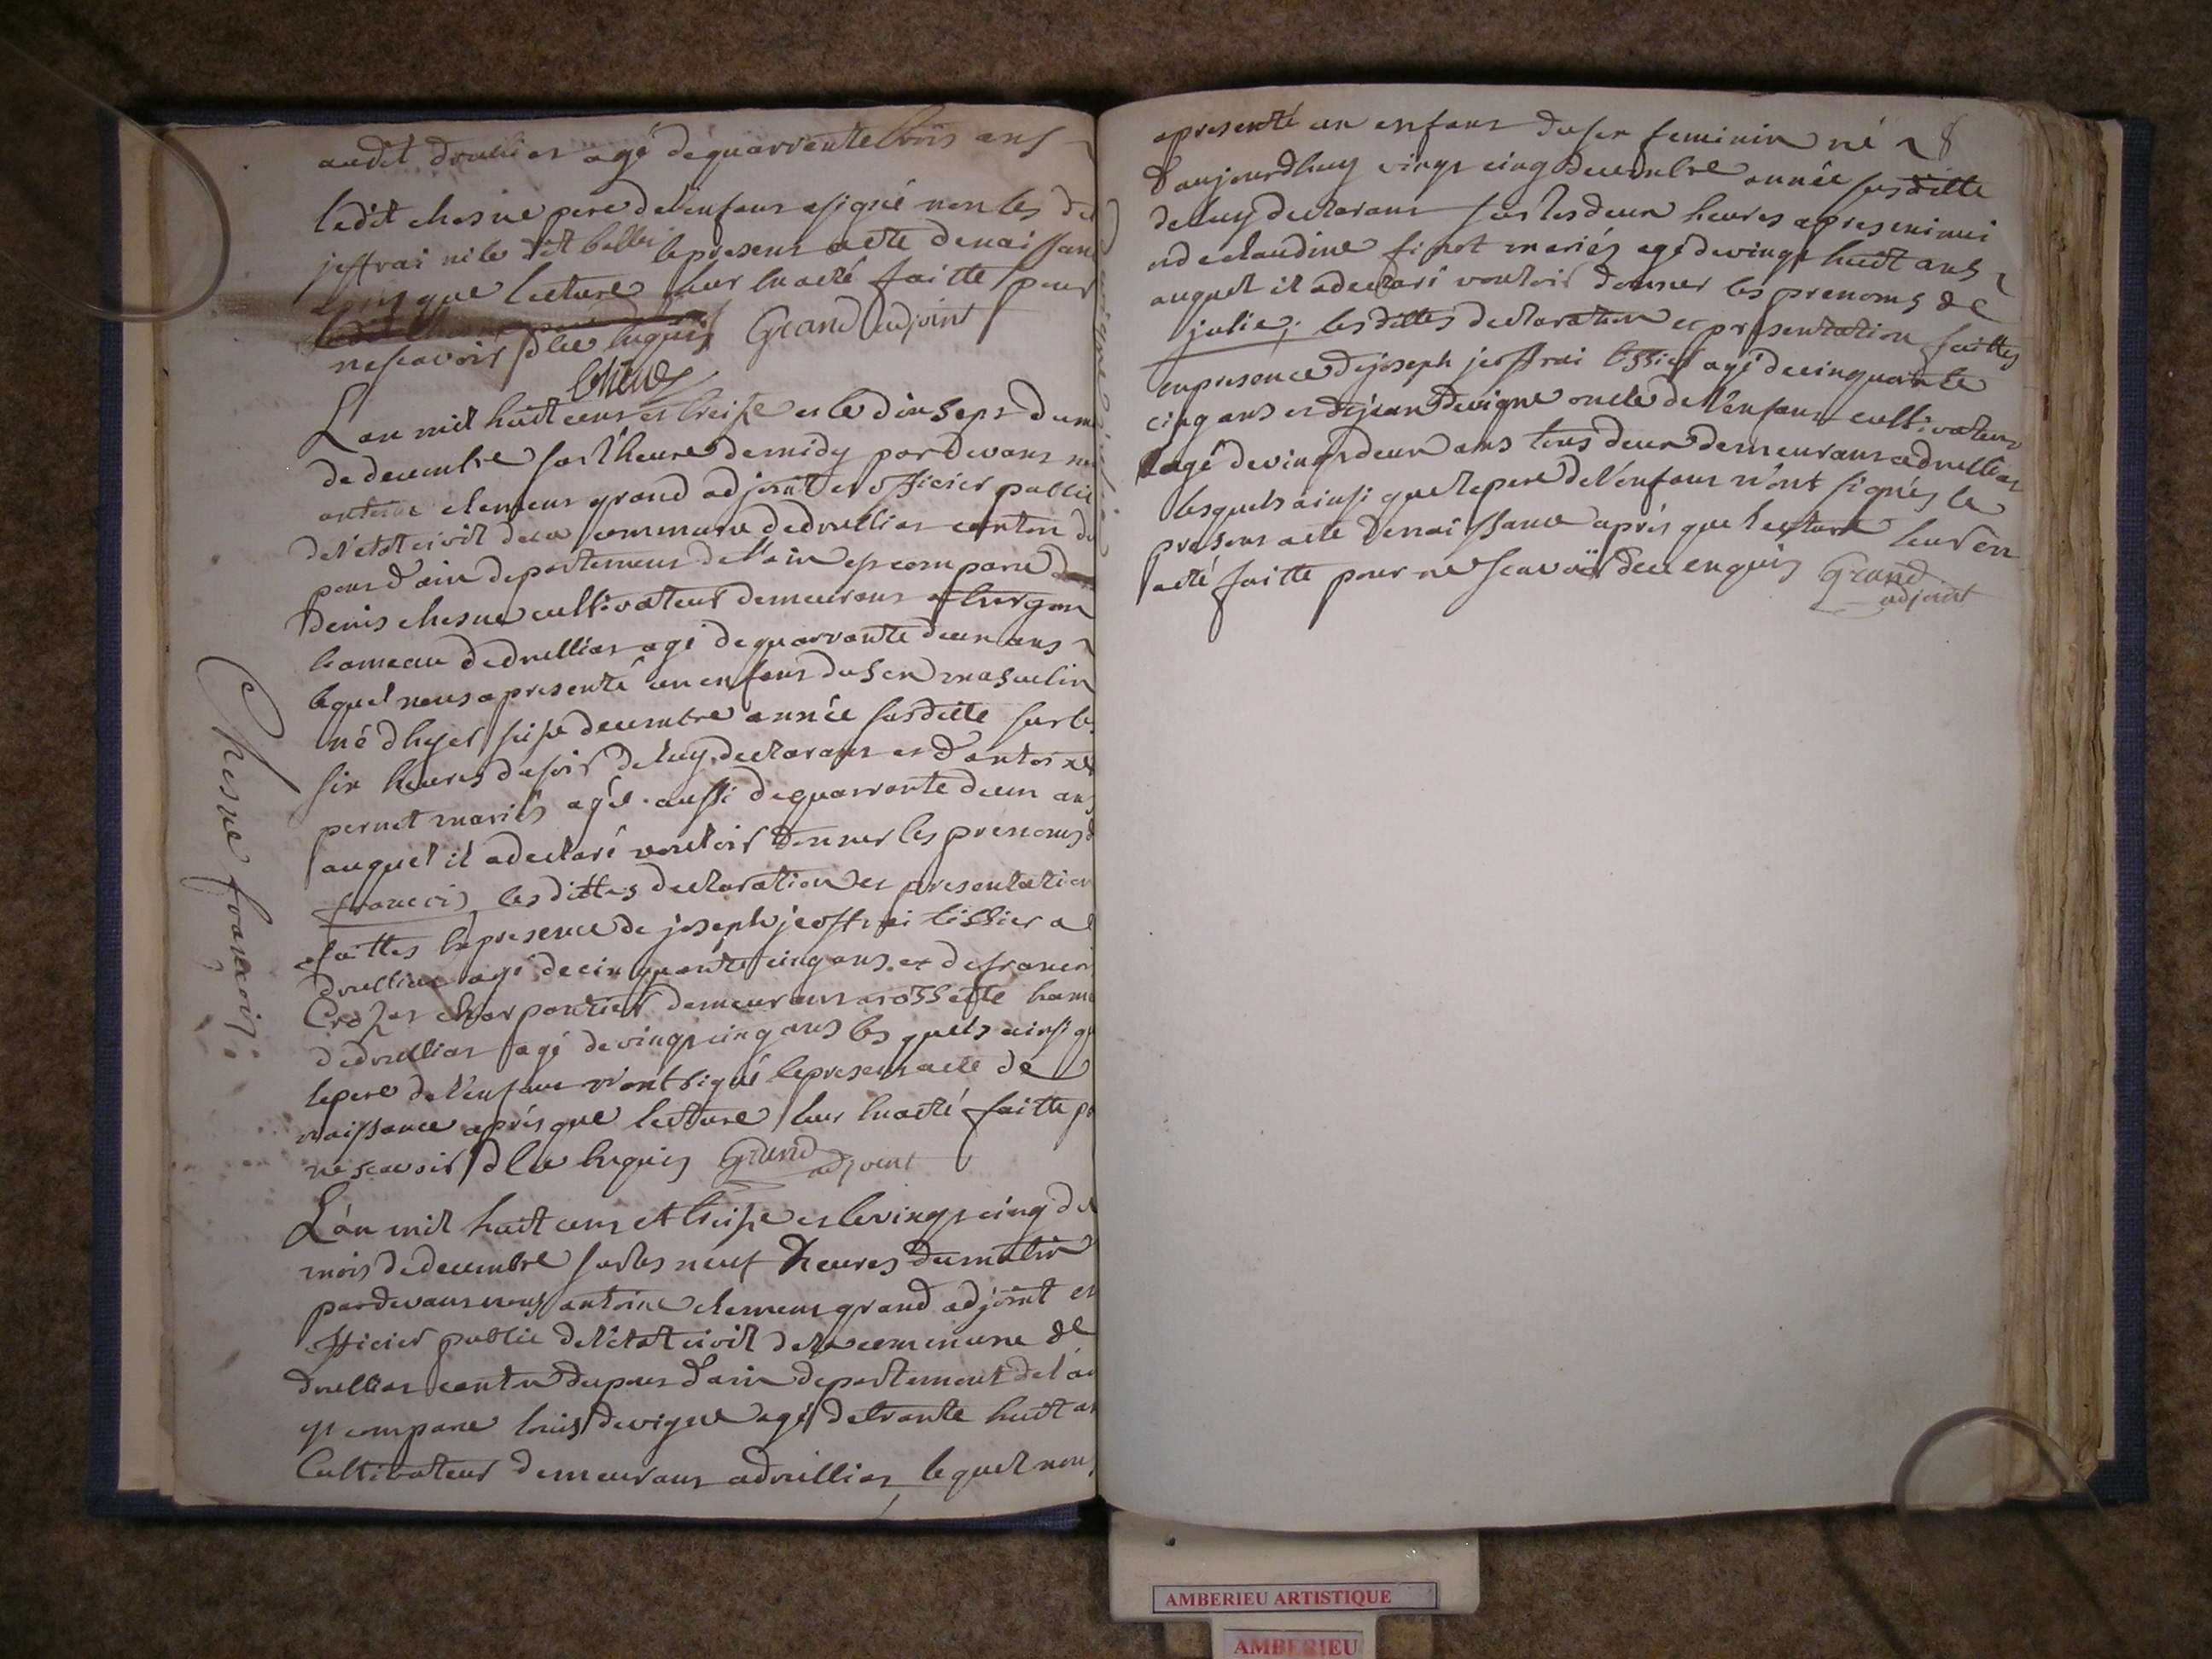 audit druillias agé de quarrante trois ans
ledit chesne pere de l'enfant a signé non les dits
jeffrai ni le dit le present acte de naissance
que lecture leur en a eté faitte pour
ne scavoir de ce enquis Grand adjoint
Chene
L'an mil huit cens et treise et le dix sept du mois
de decembre sur l'heure de midy par devant nous
antoine clement grand adjoint et officier public
de l'etat civil de la commune de druillias canton du
pont d'ain departement de l'ain est comparu
denis chesne cultivateur demeurant a turgon
hameau de druillias agé de quarrante deux ans
lequel nous a presenté un enfant du sex masculin
né d'hyer seise decembre année susditte sur les
six heures du soir de luy declarant et d'antoinette
pernet mariés agée aussi de quarrante deux ans
auquel il a declaré vouloir donner les prenoms de
francois les dittes declaration et presentation
faittes en presence de joseph jeoffrai tissier a
druillias agé de cinquante cinq ans et de francois
Crozet charpentier demeurant a rossette hameau
de druillias agé de vingt cinq ans les quels ainsi que
le pere de l'enfant n'ont signé le present acte de
naissance aprés que lecture leur en a eté faitte pour
ne scavoir de ce enquis Grand adjoint
Chesne francois
L'an mil huit cens et treise et le vingt cinq du
mois de decembre sur les neuf heures du matin
par devant nous antoine clement grand adjoint et
officier public de l'etat civil de la commune de
druillias canton du pont d'ain departement de l'ain
est comparu louis devigne agé de trante huit ans
Cultivateur demeurant a druillias lequel nous
a presenté un enfant du sex feminin né
d'aujourdhuy vingt cinq decembre année susditte
de luy declarant sur les deux heures apres minui
et de claudine finot mariés agé de vingt huit ans
auquel il a declaré vouloir donner les prenoms de
julie; les dittes declaration et presentation faittes
en presence de joseph jeoffrai tissier agé de cinquante
cinq ans et de jean devigne oncle de l'enfant cultivateur
agé de vingt deux ans tous deux demeurant a druillias
lesquels ainsi que le pere de l'enfant n'ont signés le
present acte de naissance aprés que lecture leur en
a eté faitte pour ne scavoir de ce enquis Grand
adjoint
AMBERIEU ARTISTIQUE
AMBERIEU